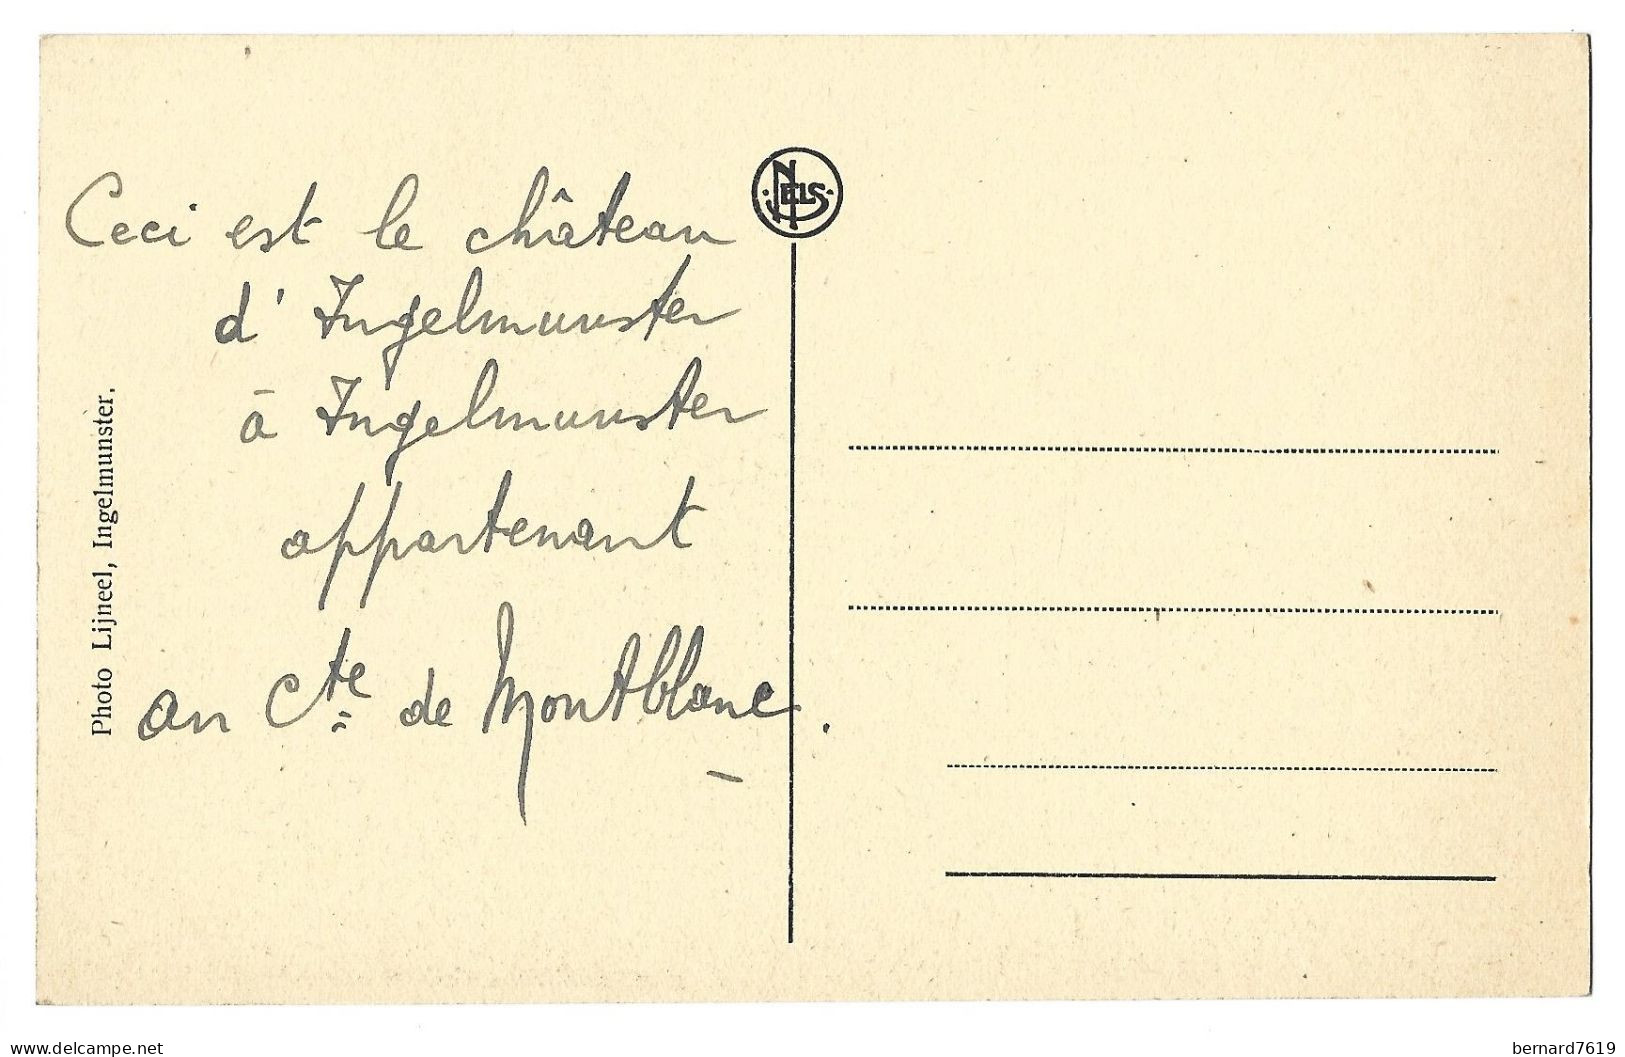 Ceci est le château
d'Ingelmunster
à Ingelmunster
appartenant
au Cte de Montblanc.
Photo Lijneel, Ingelmunster.
NELS
www.delcampe.net
bernard7619